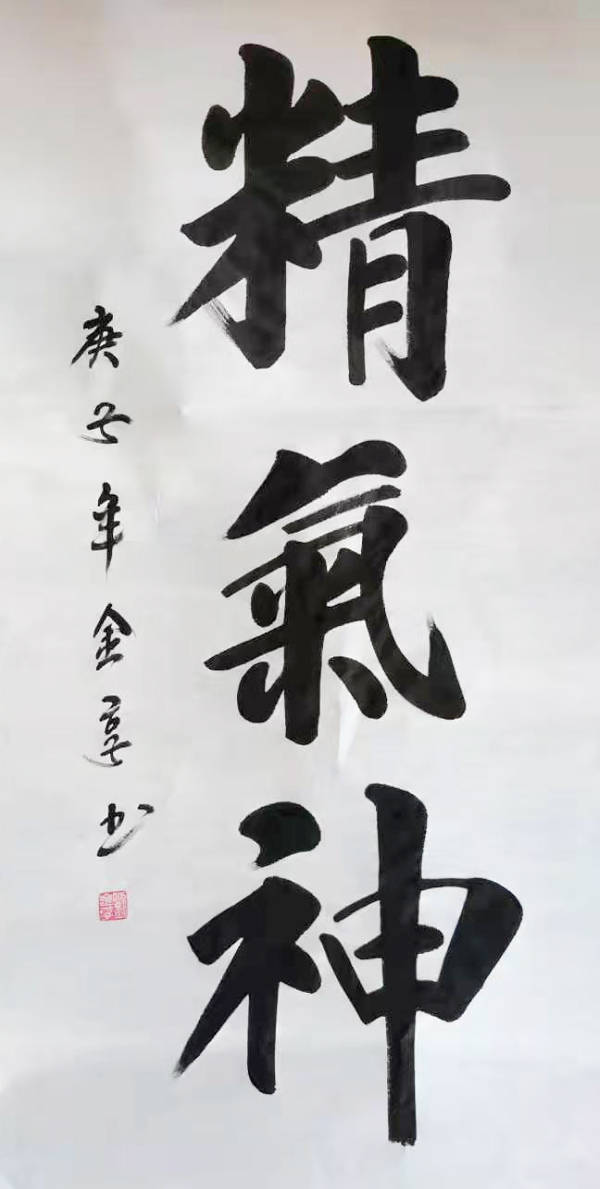 精氣神
庚子年金享书